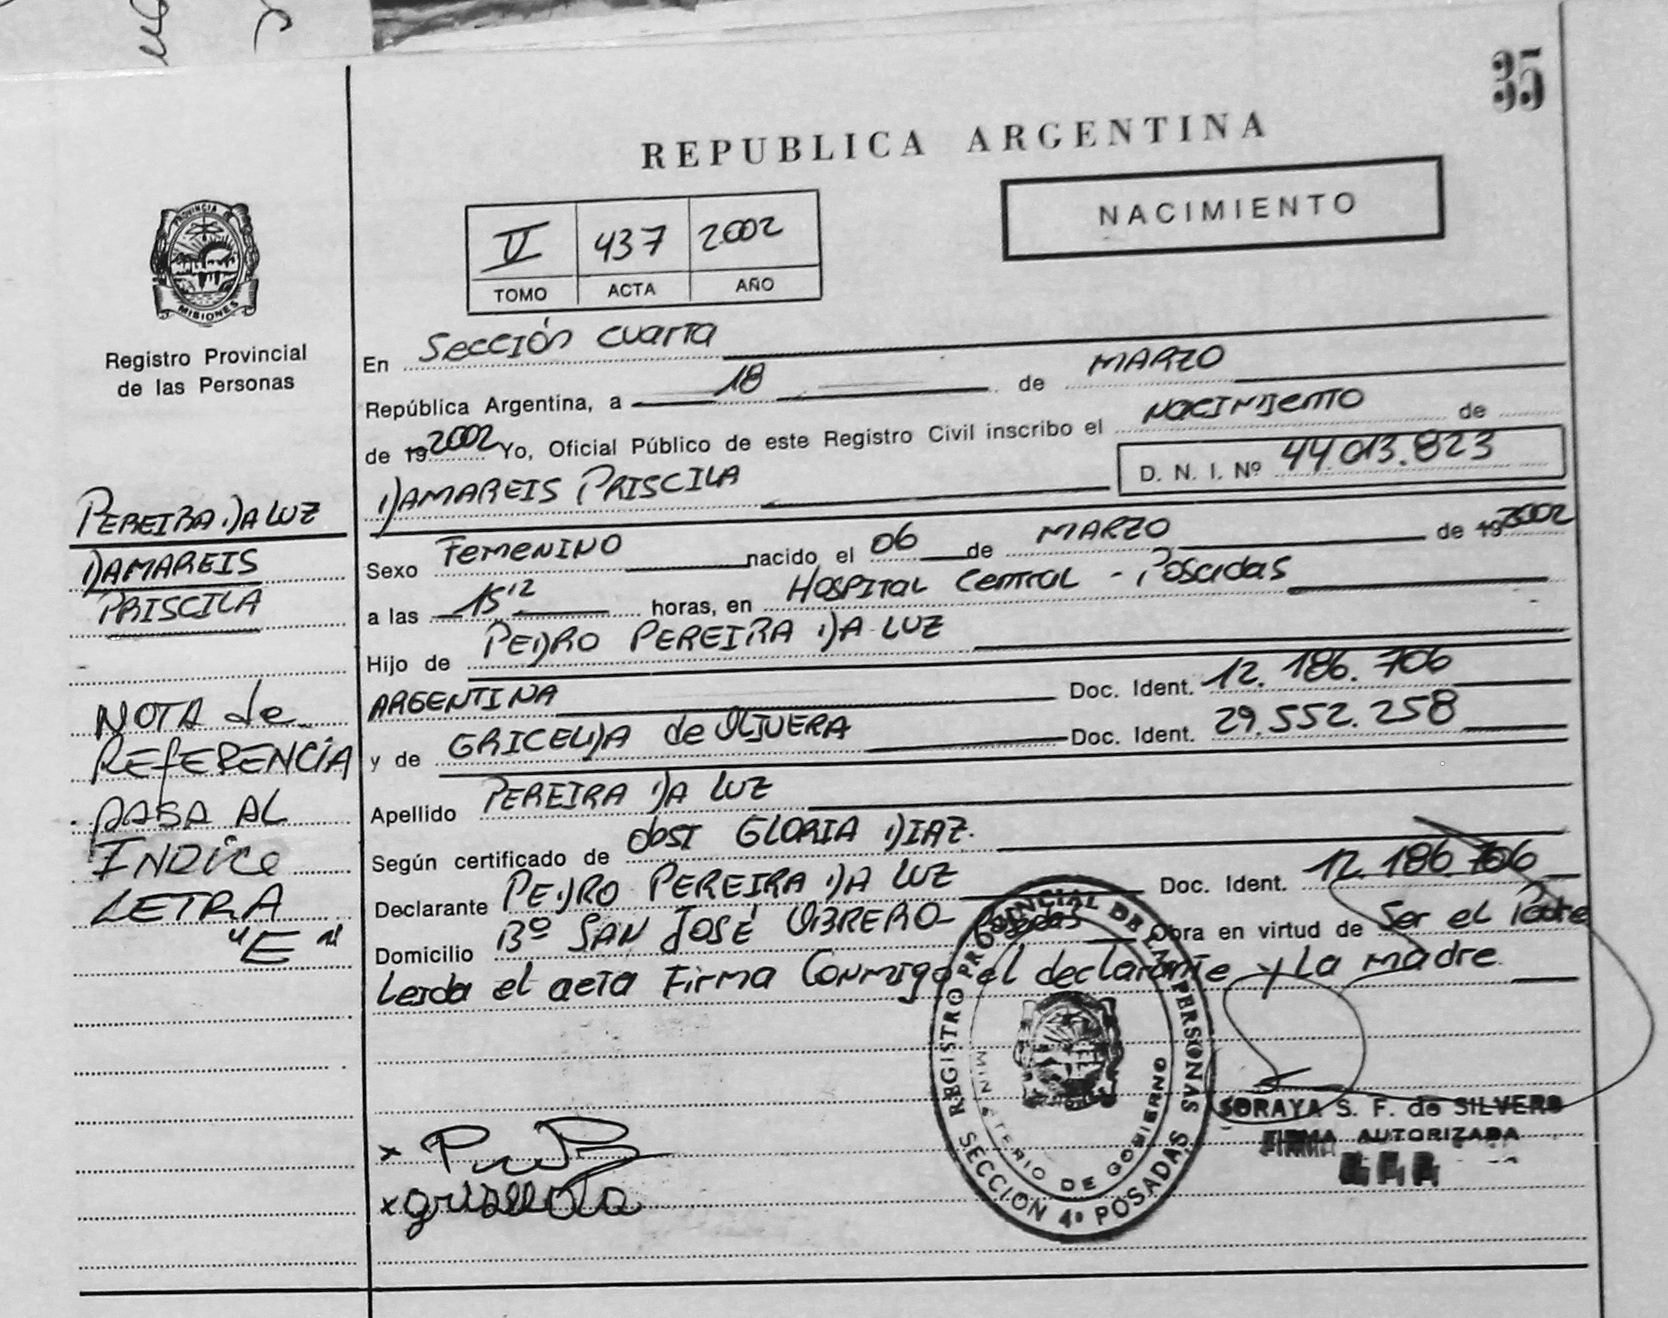 35
REPUBLICA ARGENTINA
NACIMIENTO
VI 437 2002
TOMO ACTA AÑO
PROVINCIA DE MISIONES
Registro Provincial
de las Personas
En Sección cuarta
República Argentina, a 18 de MARZO
de 192002 Yo, Oficial Público de este Registro Civil inscribo el NACIMIENTO de
D. N. I. Nº 44.013.823
DAMAREIS PRISCILA
Sexo FEMENINO nacido el 06 de MARZO de 192002
a las 15'12 horas, en HOSPITAL CENTRAL - Posadas
Hijo de PEDRO PEREIRA DA LUZ
ARGENTINA Doc. Ident. 12.186.706
y de GRICELDA de OLIVERA Doc. Ident. 29.552.258
Apellido PEREIRA DA LUZ
Según certificado de obst GLORIA DIAZ.
Declarante PEDRO PEREIRA DA LUZ Doc. Ident. 12.186.706
Domicilio Bº SAN JOSÉ OBRERO- Posadas Obra en virtud de Ser el Padre
Leida el acta Firma Conmigo el declarante y La madre
PEREIRA DA LUZ
DAMAREIS
PRISCILA
NOTA de
REFERENCIA
PASA AL
INDICE
LETRA
"E"
REGISTRO PROVINCIAL DE LAS PERSONAS
MINISTERIO DE GOBIERNO
SECCION 4ª POSADAS
SORAYA S. F. de SILVERO
FIRMA AUTORIZADA
x
x